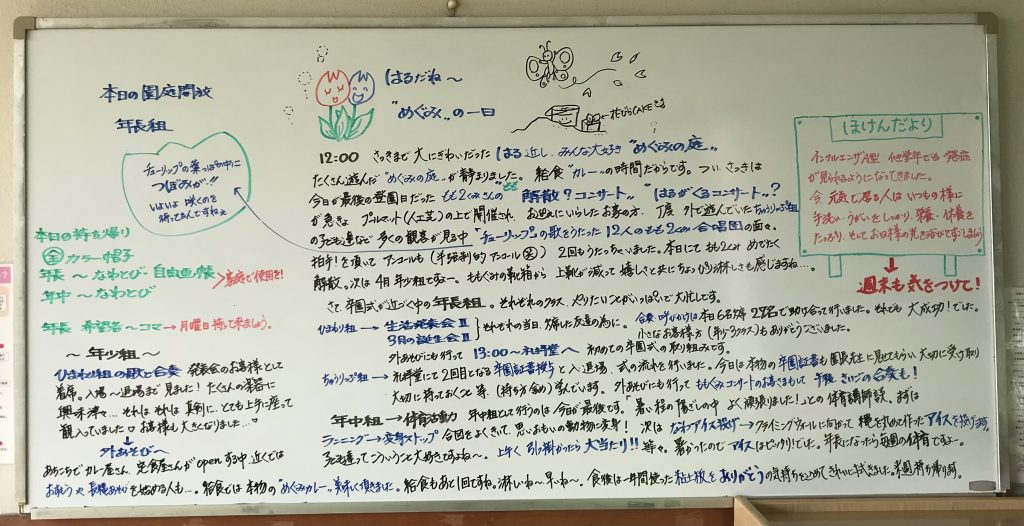 本日の園庭開放
年長組
チューリップの葉っぱの中に
つぼみが!!
いよいよ 咲くのを
待ってるんですねぇ
本日の持ち帰り
全 カラー帽子
年長 〜 なわとび・自由画帳
年中 〜 なわとび
家庭で使用を!
年長 希望者〜コマ → 月曜日持って来ましょう。
〜 年少組 〜
ひまわり組の歌と合奏 発表会のお客様として
着席。入場〜退場まで見ました! たくさんの楽器に
興味津々… それは それは 真剣に、とても上手に座って
観入っていました♡ お客様も大きくなりました…♡
外あそびへ
あちこちで カレー屋さん、定食屋さんが openする中、近くでは
を始める人も…。給食では 本物の "めぐみカレー"、美味しく頂きました。給食もあと1回ですね。淋しいね〜 早いね〜。食後は一年間使った 粘土板を ありがとう の気持ちをこめて きれいに拭きました。
はるだね〜
"めぐみ"の一日
花びらCAKE
12:00 さっきまで 大にぎわいだった はる近し、みんな大好き "めぐみの庭"
たくさん遊んだ "めぐみの庭" が静まりました。 給食 "カレー" の時間だからです。 つい さっきは
今日が最後の登園日だった もも2くみさんの 解散?コンサート、"はるがくるコンサート"?
が 急きょ ブルマット(人工芝)の上で開催され、お迎えにいらしたお客の方、丁度 外で遊んでいた ちゅうりっぷ組
の子ども達など 多くの観客が見守る中 "チューリップ" の歌をうたった 12人のもも2くみ合唱団の面々。
拍手!を頂いて アンコールも (半強制的アンコール) 2回もうたっちゃいました。本日にて もも2くみ めでたく
解散。次は 4月 年少組ですよー。 ももぐみの靴箱から 上靴が減って 嬉しさと共に ちょっぴり淋しさも感じますね…。
さて 卒園式が近づく中の 年長組。 それぞれのクラス、やりたいことがいっぱいで 大忙しです。
ひまわり組 → 生活発表会Ⅱ
3月の誕生会Ⅱ
それぞれの当日、欠席した友達の為に。合奏、呼びかけは本日6名欠席 で助け合って行いました。それでも 大成功!でした。
小さなお客様方 (年少クラス)も ありがとうございました。
外あそびにも行って 13:00〜礼拝堂へ 初めての卒園式の取り組みです。
ちゅうりっぷ組 → 礼拝堂にて 2回目となる 卒園証書授与 と 入退場、式の流れを行いました。今日は本物の 卒園証書も 園長先生に見せてもらい、大切に受け取り
大切に持っておくこと等 (持ち方含め)学んでいます。 外あそびにも行って ももくみコンサートのお客さまもして 午後 さいごの合奏も!
年中組 → 体育活動 年中組として行うのは今日が最後です。「暑い程の陽ざしの中 よく頑張りました!」との 体育講師談。まずは
ランニング → 変身ストップ 今回をよくきいて、思いおもいの動物に変身! 次は なわアイス投げ → クライミングウォールに向かって 縄を丸めて作った アイスを投げます。
子ども達って こういうこと大好きですよね〜。上手く 引っ掛かったら 大当たり!! 等々。暑かったので アイスはピッタリでした。年長になったら 毎週の体育ですよー。
ほけんだより
インフルエンザA型 他学年でも 発症
が見られるようになってきました。
今 元気で居る人は いつもの様に
手洗い・うがいをしっかり、栄養・休養を
たっぷり、そして お日様の光を浴びて
週末も気をつけて!